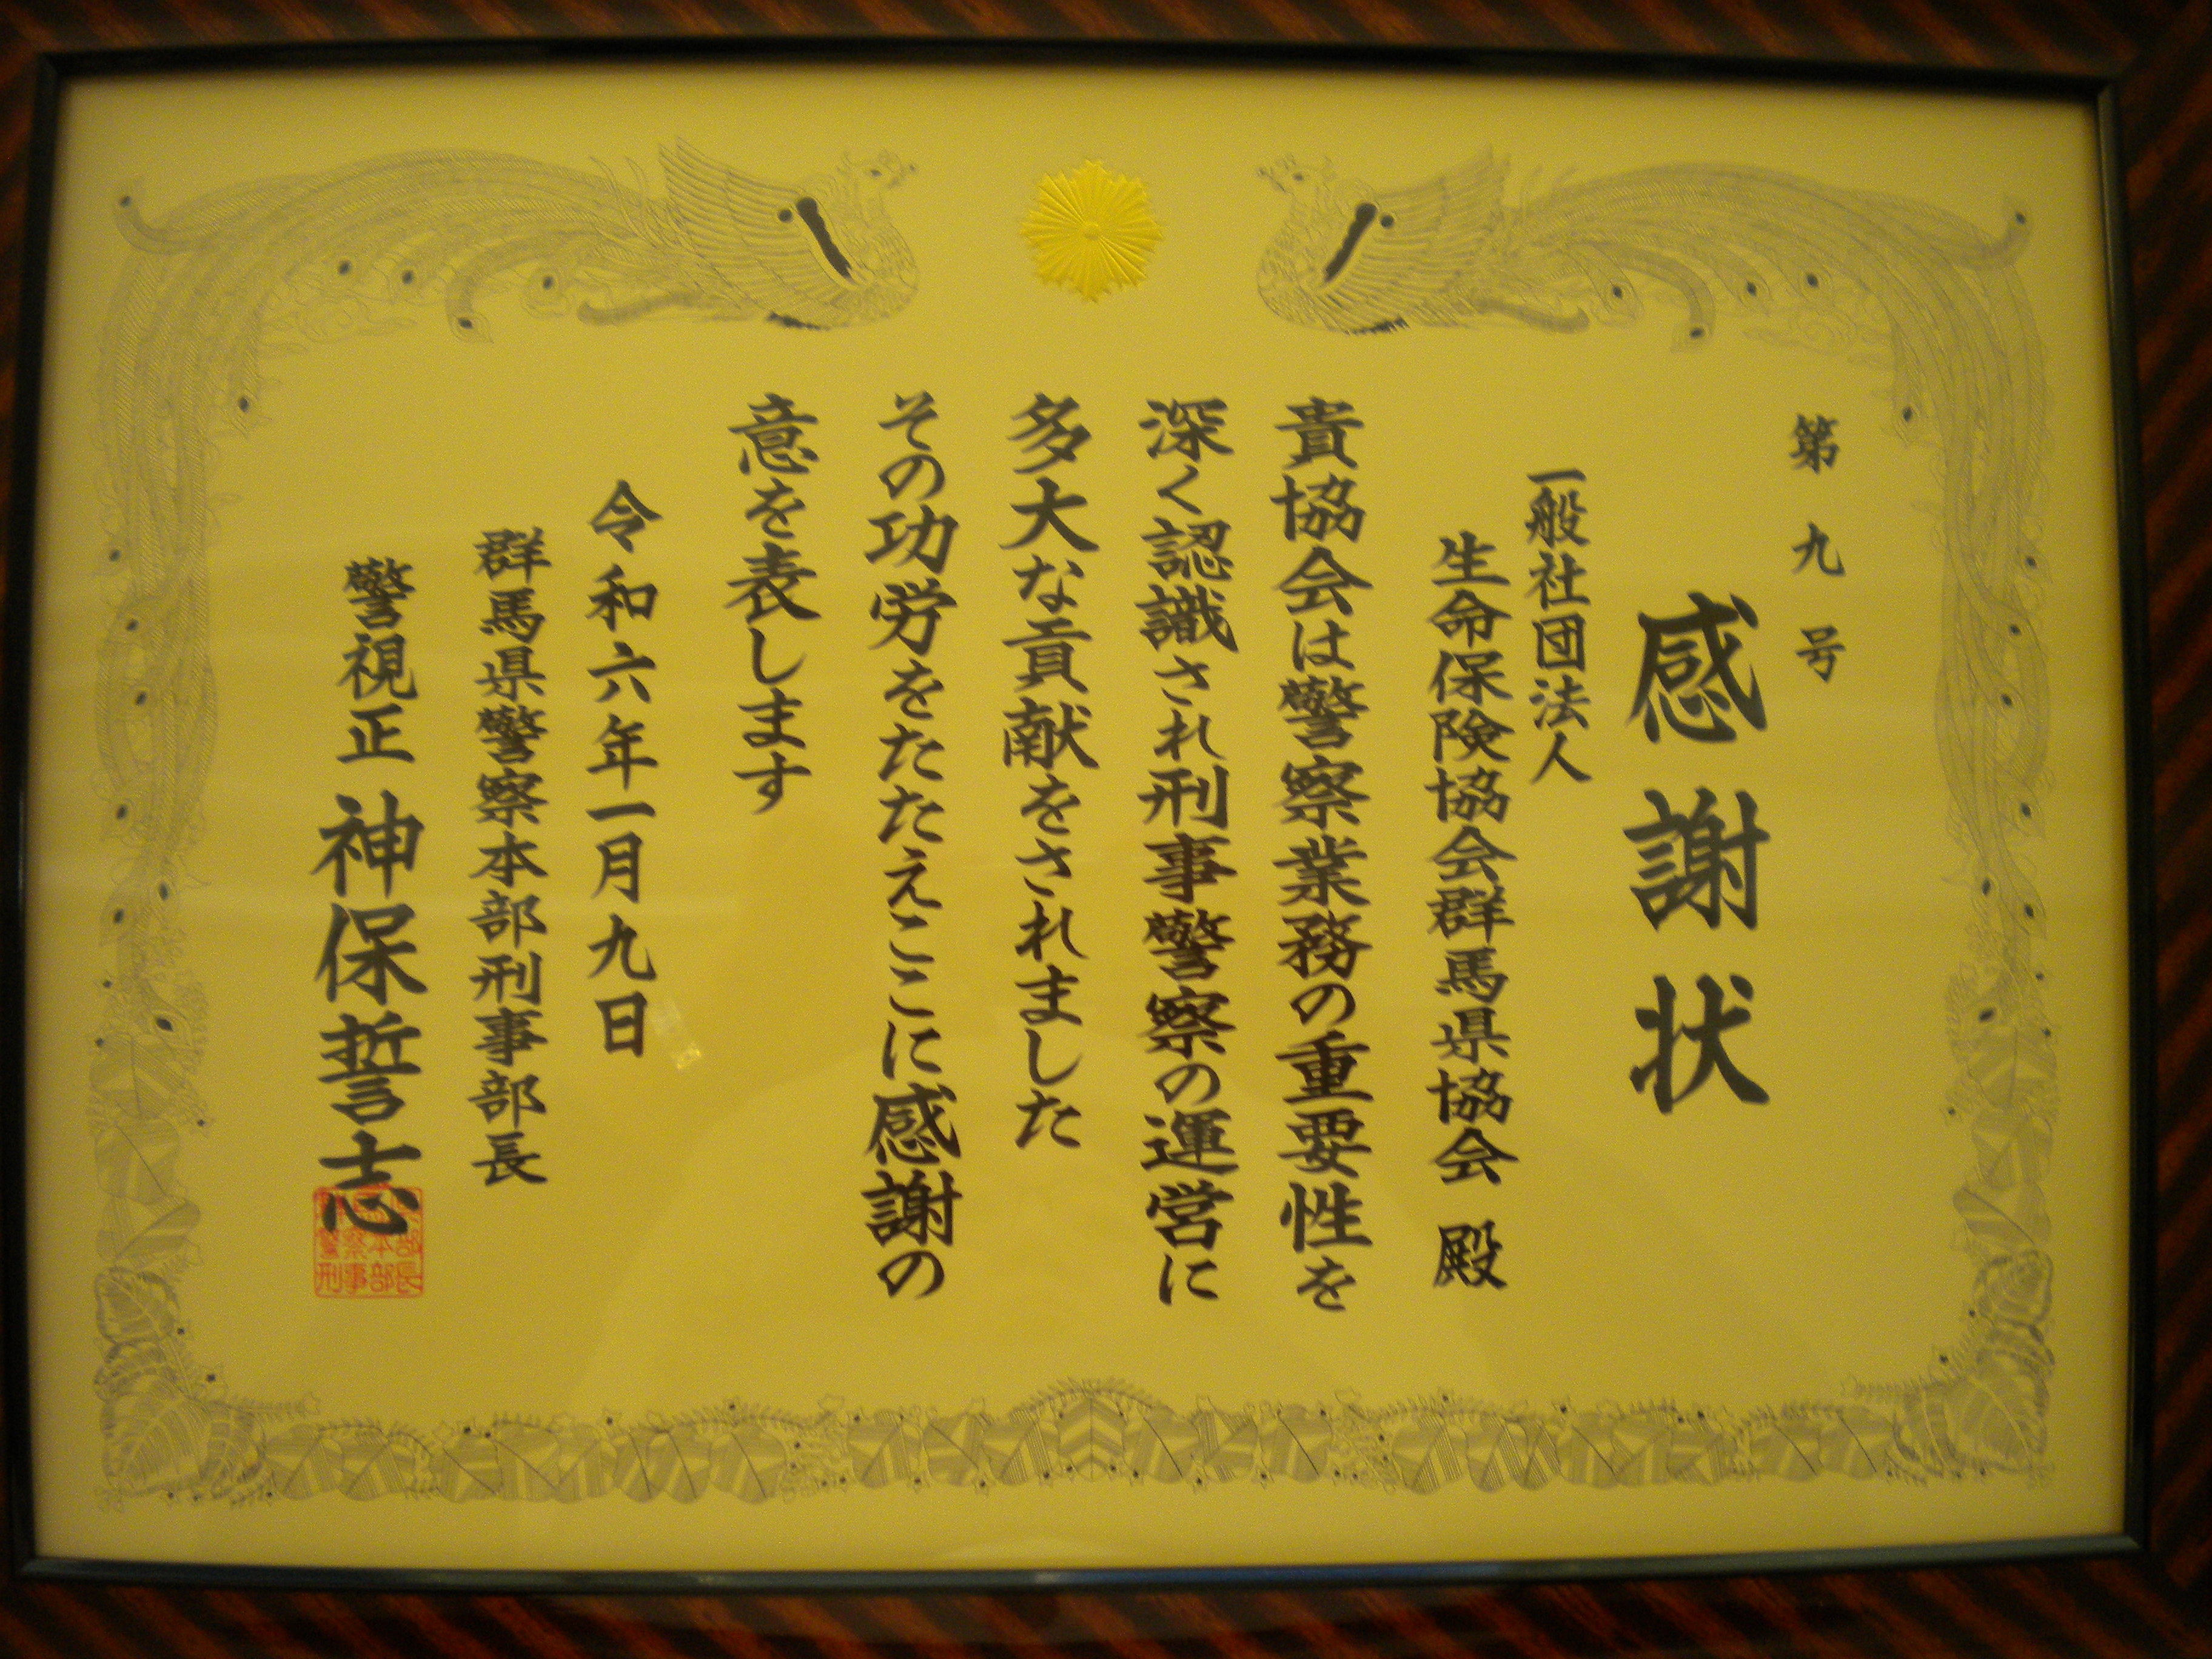 第九号
感謝状
一般社団法人
生命保険協会群馬県協会 殿
貴協会は警察業務の重要性を
深く認識され刑事警察の運営に
多大な貢献をされました
その功労をたたえここに感謝の
意を表します
令和六年一月九日
群馬県警察本部刑事部長
警視正 神保誓志
群馬県
警察本部
刑事部長